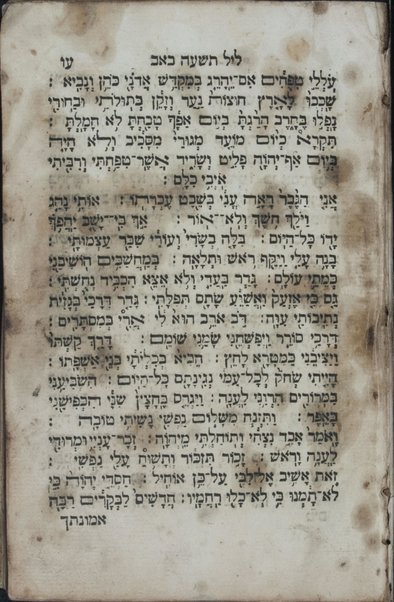 ליל תשעה באב עו
עֹלֲלֵי טִפֻּחִים אִם־יֵהָרֵג בְּמִקְדַּשׁ אֲדֹנָי כֹּהֵן וְנָבִיא :
שָׁכְבוּ לָאָרֶץ חוּצוֹת נַעַר וְזָקֵן בְּתוּלֹתַי וּבַחוּרַי
נָפְלוּ בֶחָרֶב הָרַגְתָּ בְּיוֹם אַפֶּךָ טָבַחְתָּ לֹא חָמָלְתָּ :
תִּקְרָא כְיוֹם מוֹעֵד מְגוּרַי מִסָּבִיב וְלֹא הָיָה
בְּיוֹם אַף־יְהוָה פָּלִיט וְשָׂרִיד אֲשֶׁר־טִפַּחְתִּי וְרִבִּיתִי
אֹיְבִי כִלָּם :
אֲנִי הַגֶּבֶר רָאָה עֳנִי בְּשֵׁבֶט עֶבְרָתוֹ : אוֹתִי נָהַג
וַיֹּלַךְ חֹשֶׁךְ וְלֹא־אוֹר : אַךְ בִּי־יָשֻׁב יַהֲפֹךְ
יָדוֹ כָּל־הַיּוֹם : בִּלָּה בְשָׂרִי וְעוֹרִי שִׁבַּר עַצְמוֹתָי :
בָּנָה עָלַי וַיַּקַּף רֹאשׁ וּתְלָאָה : בְּמַחֲשַׁכִּים הוֹשִׁיבַנִי
כְּמֵתֵי עוֹלָם : גָּדַר בַּעֲדִי וְלֹא אֵצֵא הִכְבִּיד נְחָשְׁתִּי :
גַּם כִּי אֶזְעַק וַאֲשַׁוֵּעַ שָׂתַם תְּפִלָּתִי : גָּדַר דְּרָכַי בְּגָזִית
נְתִיבוֹתַי עִוָּה : דֹּב אֹרֵב הוּא לִי אֲרִי בְּמִסְתָּרִים :
דְּרָכַי סוֹרֵר וַיְפַשְּׁחֵנִי שָׂמַנִי שׁוֹמֵם : דָּרַךְ קַשְׁתּוֹ
וַיַּצִּיבֵנִי כַּמַּטָּרָא לַחֵץ : הֵבִיא בְּכִלְיֹתָי בְּנֵי אַשְׁפָּתוֹ :
הָיִיתִי שְּׂחֹק לְכָל־עַמִּי נְגִינָתָם כָּל־הַיּוֹם : הִשְׂבִּיעַנִי
בַמְּרוֹרִים הִרְוַנִי לַעֲנָה : וַיַּגְרֵס בֶּחָצָץ שִׁנָּי הִכְפִּישַׁנִי
בָּאֵפֶר : וַתִּזְנַח מִשָּׁלוֹם נַפְשִׁי נָשִׁיתִי טוֹבָה :
וָאֹמַר אָבַד נִצְחִי וְתוֹחַלְתִּי מֵיְהוָה : זְכָר־עָנְיִי וּמְרוּדִי
לַעֲנָה וָרֹאשׁ : זָכוֹר תִּזְכּוֹר וְתָשׁוֹחַ עָלַי נַפְשִׁי :
זֹאת אָשִׁיב אֶל־לִבִּי עַל־כֵּן אוֹחִיל : חַסְדֵי יְהוָה כִּי
לֹא־תָמְנוּ כִּי לֹא־כָלוּ רַחֲמָיו : חֲדָשִׁים לַבְּקָרִים רַבָּה
אמונתך